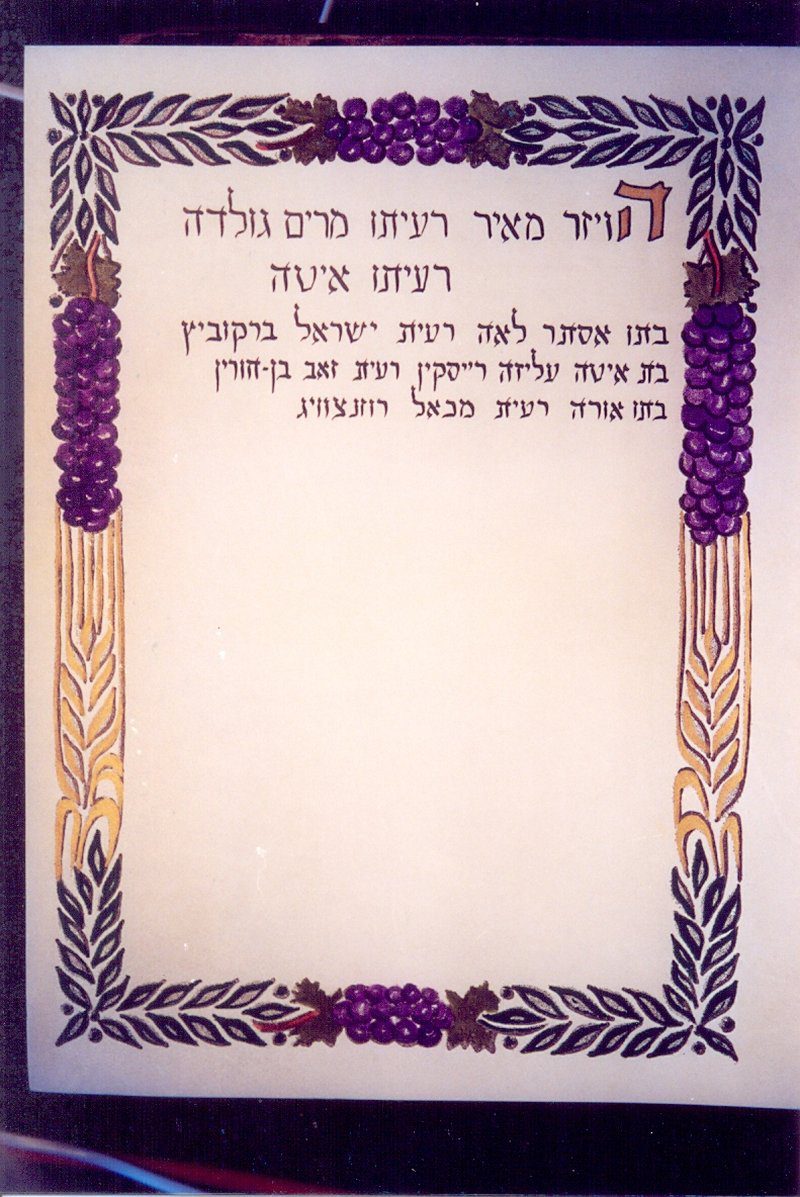 הויזר מאיר רעיתו מרים גולדה
רעיתו איטה
בתו אסתר לאה רעית ישראל ברקוביץ
בת איטה עליזה רייסקין רעית זאב בן-חורין
בתו אורה רעית מכאל רוזנצוויג